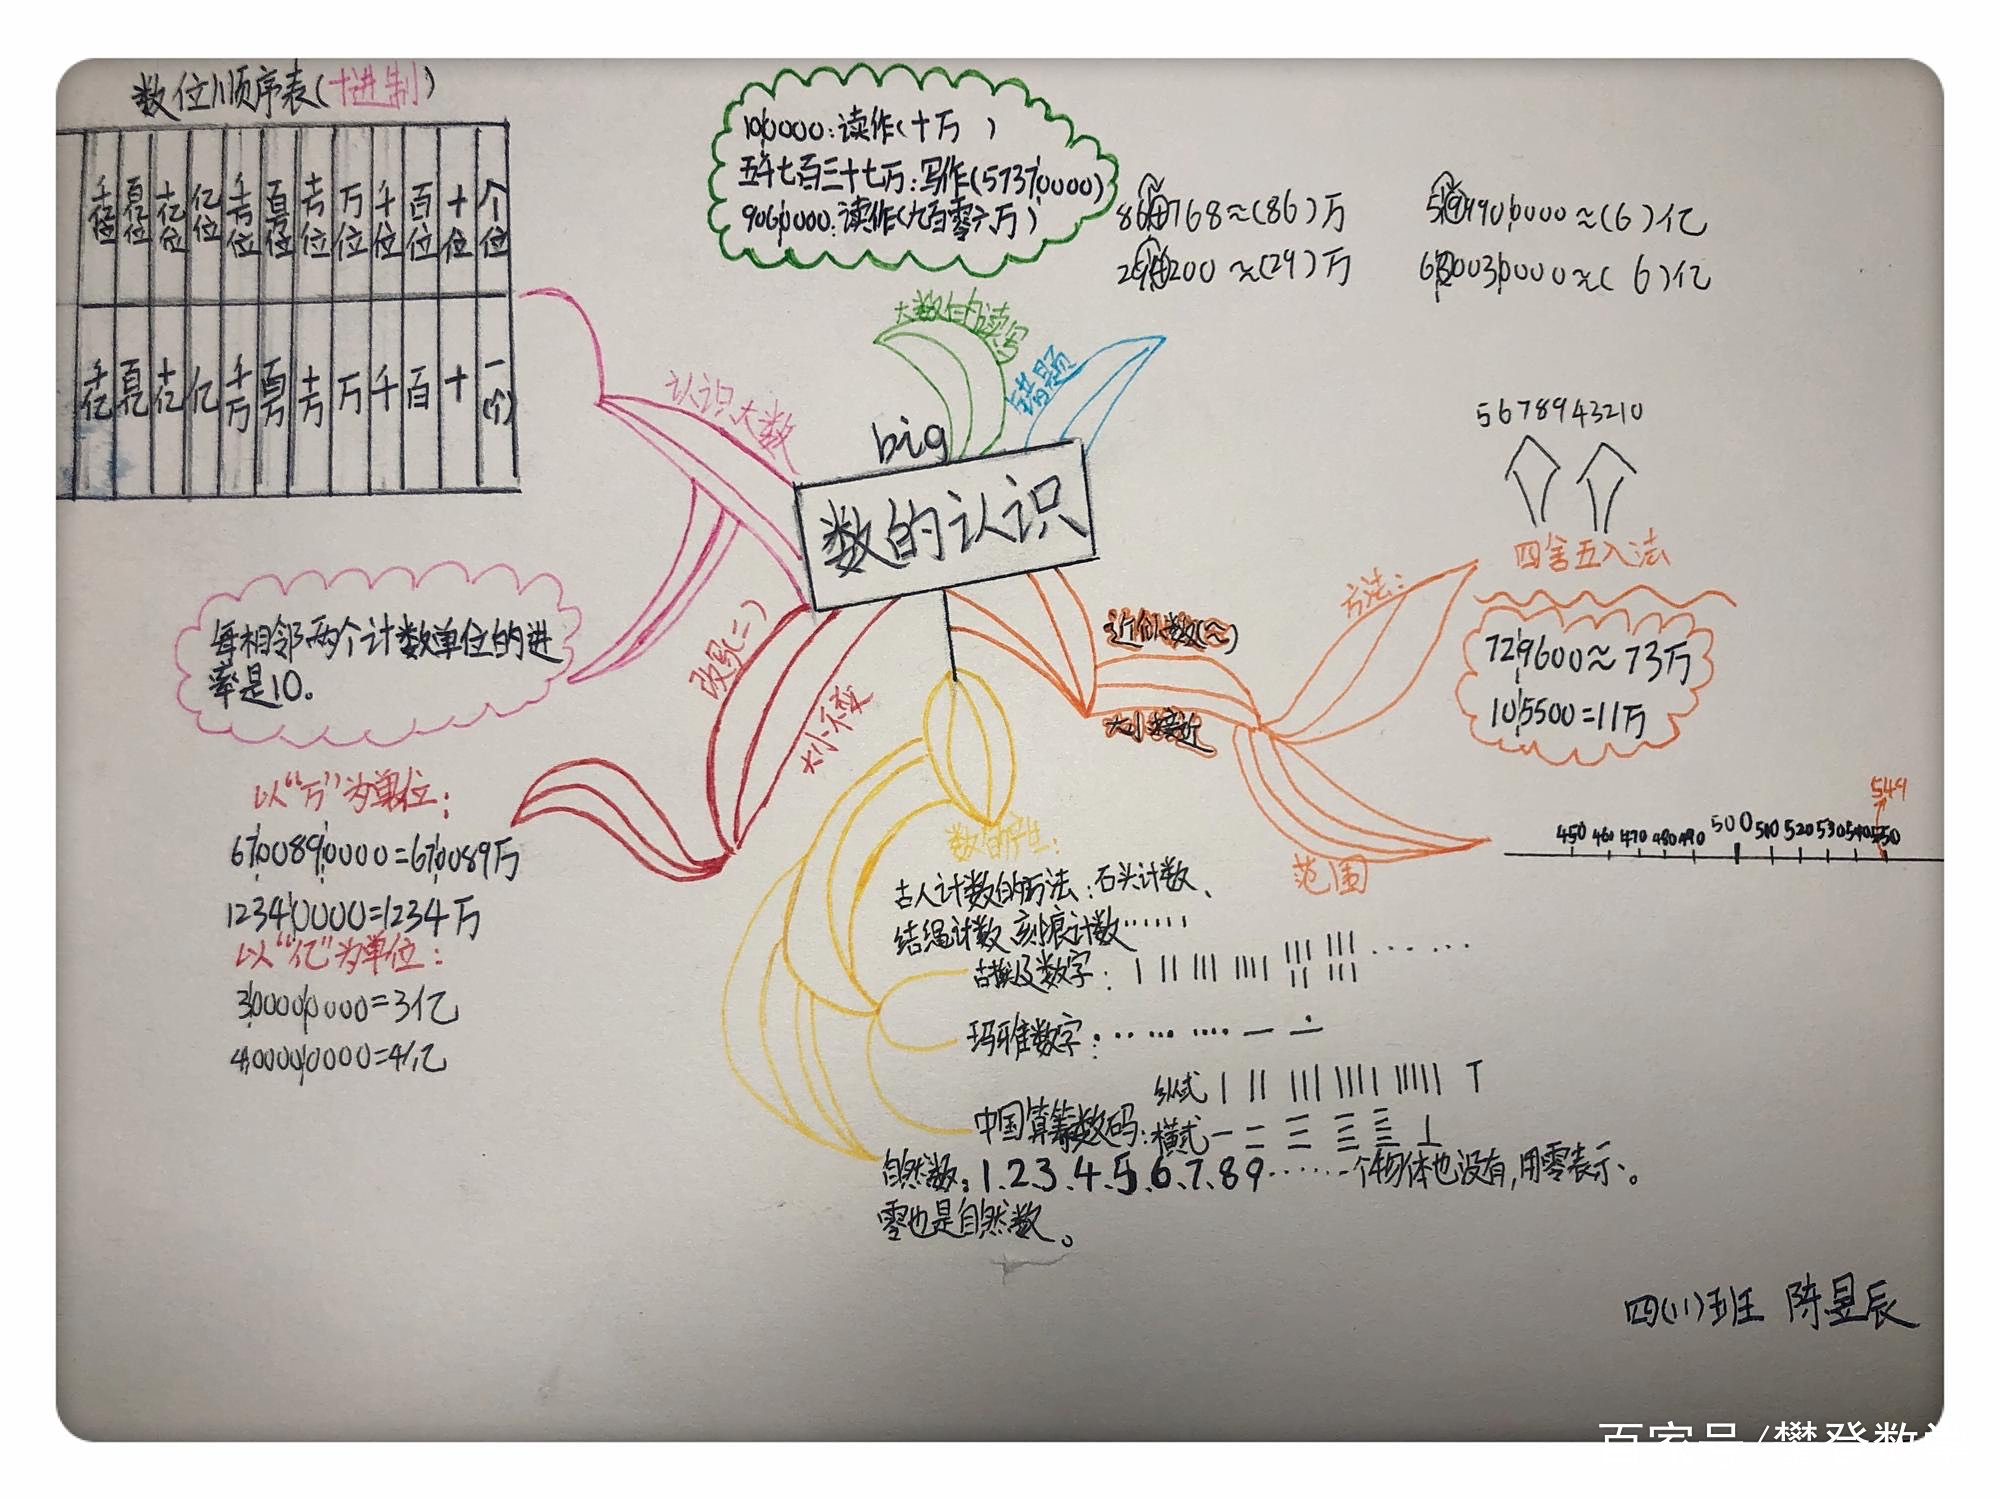 数位顺序表(十进制)
千亿位 百亿位 十亿位 亿位 千万位 百万位 十万位 万位 千位 百位 十位 个位
千亿 百亿 十亿 亿 千万 百万 十万 万 千 百 十 一(个)
100000:读作(十万)
五千七百三十七万:写作(57370000)
9060000:读作(九百零六万)
768≈(86)万
200≈(29)万
≈(6)亿
≈(6)亿
大数的读写
错题
认识大数
big
数的认识
每相邻两个计数单位的进
率是10。
改写(=)
大小不变
以“万”为单位:
6700890000=670089万
12340000=1234万
以“亿”为单位:
300000000=3亿
400000000=4亿
近似数(≈)
大小接近
方法:
5678943210
四舍五入法
729600≈73万
105500=11万
范围
549
450 460 470 480 490 500 510 520 530 540 550
数的产生:
古人计数的方法:石头计数、
结绳计数 刻痕计数……
古埃及数字:
玛雅数字:
中国算筹数码:
纵式
横式
自然数:1、2、3、4、5、6、7、8 9……一个物体也没有,用零表示。
零也是自然数。
四(11)班 陈昱辰
百家号/樊登数